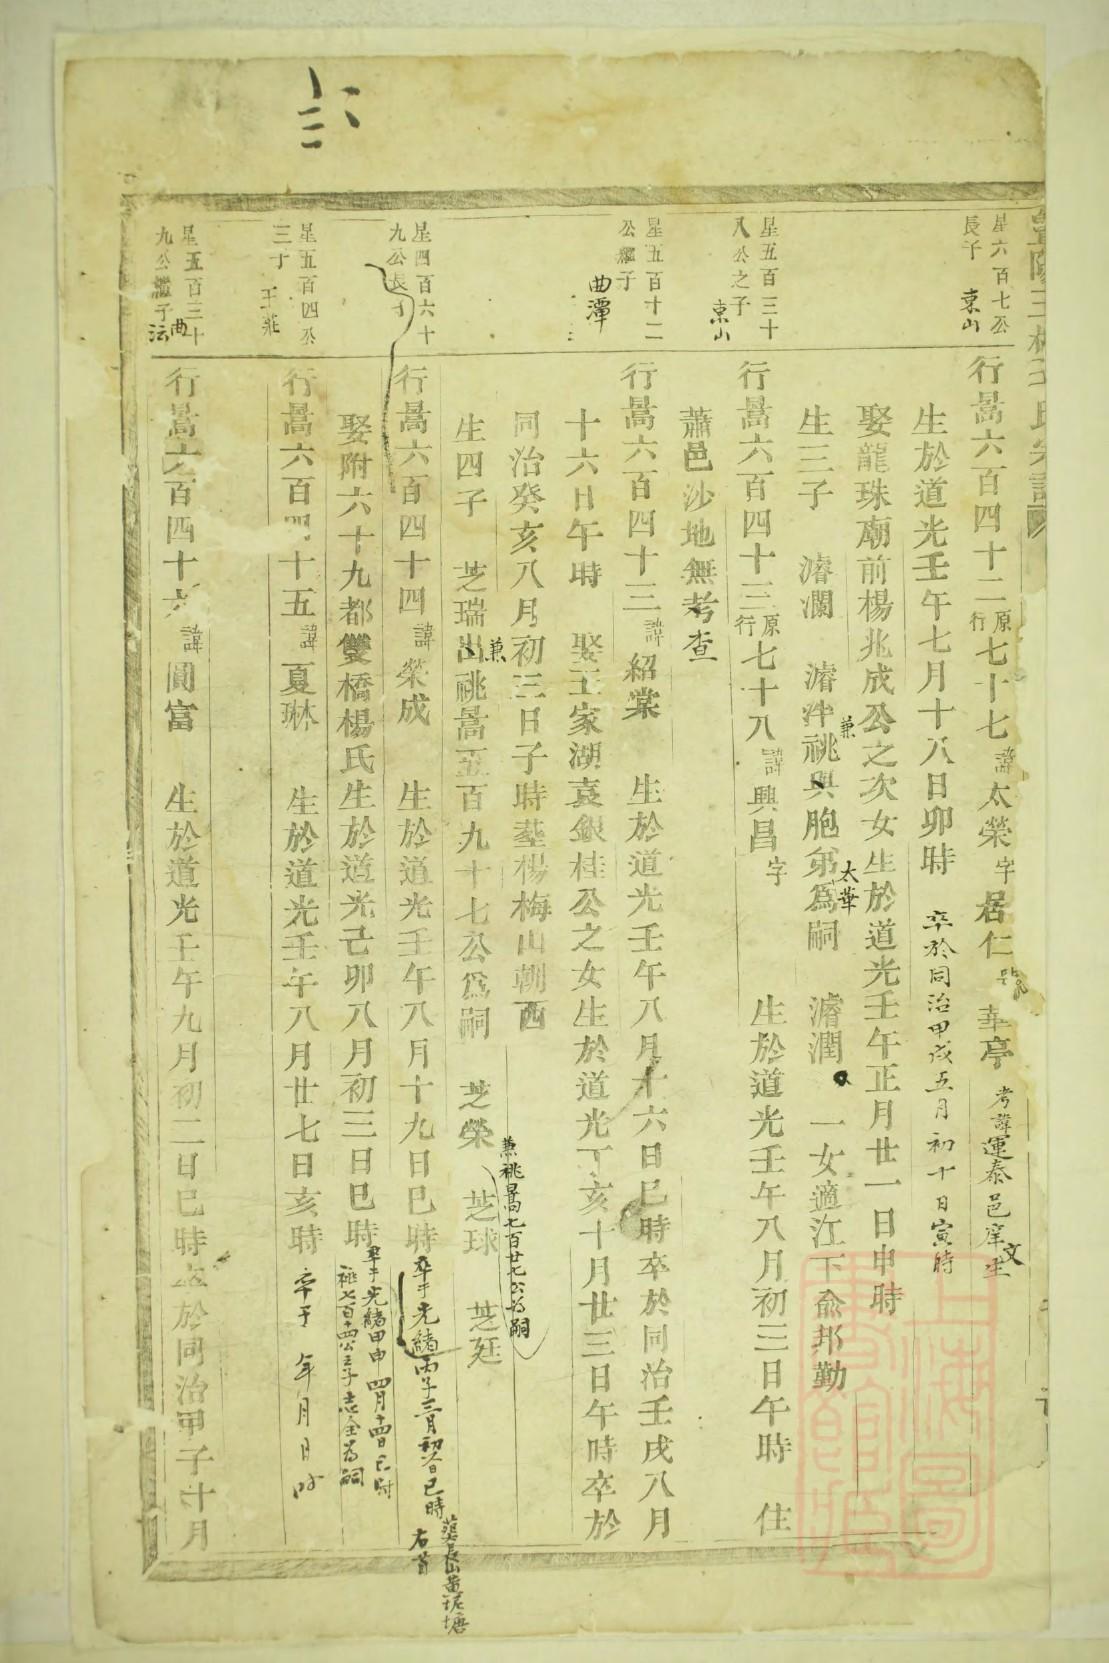 星六百七公
長子
東山
行暠六百四十二原行七十七諱太榮字居仁 華亭 考諱運泰邑庠文生
生於道光壬午七月十八日卯時 卒於同治甲戌五月初十日寅時
娶龍珠廟前楊兆成公之次女生於道光壬午正月廿一日申時
生三子 濬瀾 濬泮兼祧與胞弟太華爲嗣 濬潤 一女適江下俞邦勤
星五百三十
八公之子
東山
行暠六百四十三原行七十八諱興昌字 生於道光壬午八月初三日午時 住
蕭邑沙地無考查
星五百十二
公繼子
曲潭
行暠六百四十三諱紹棠 生於道光壬午八月十六日巳時卒於同治壬戌八月
十六日午時 娶王家湖袁銀桂公之女生於道光丁亥十月廿三日午時卒於
同治癸亥八月初三日子時塟楊梅山朝西
生四子 芝瑞出兼祧暠五百九十七公爲嗣 芝榮 兼祧暠七百廿七公为嗣 芝球 芝廷
星四百六十
九公長子
行暠六百四十四諱榮成 生於道光壬午八月十九日巳時 卒于光緒丙子三月初 日巳時
娶附六十九都雙橋楊氏生於道光己卯八月初三日巳時 卒于光緒甲申四月 日巳时
祧七百十四公三子志全为嗣
星五百四公
三子
王莊
行暠六百四十五諱夏琳 生於道光壬午八月廿七日亥時 卒于 年 月 日 时
星五百三十
九公繼子
行暠六百四十六諱圓富 生於道光壬午九月初二日巳時卒於同治甲子十月